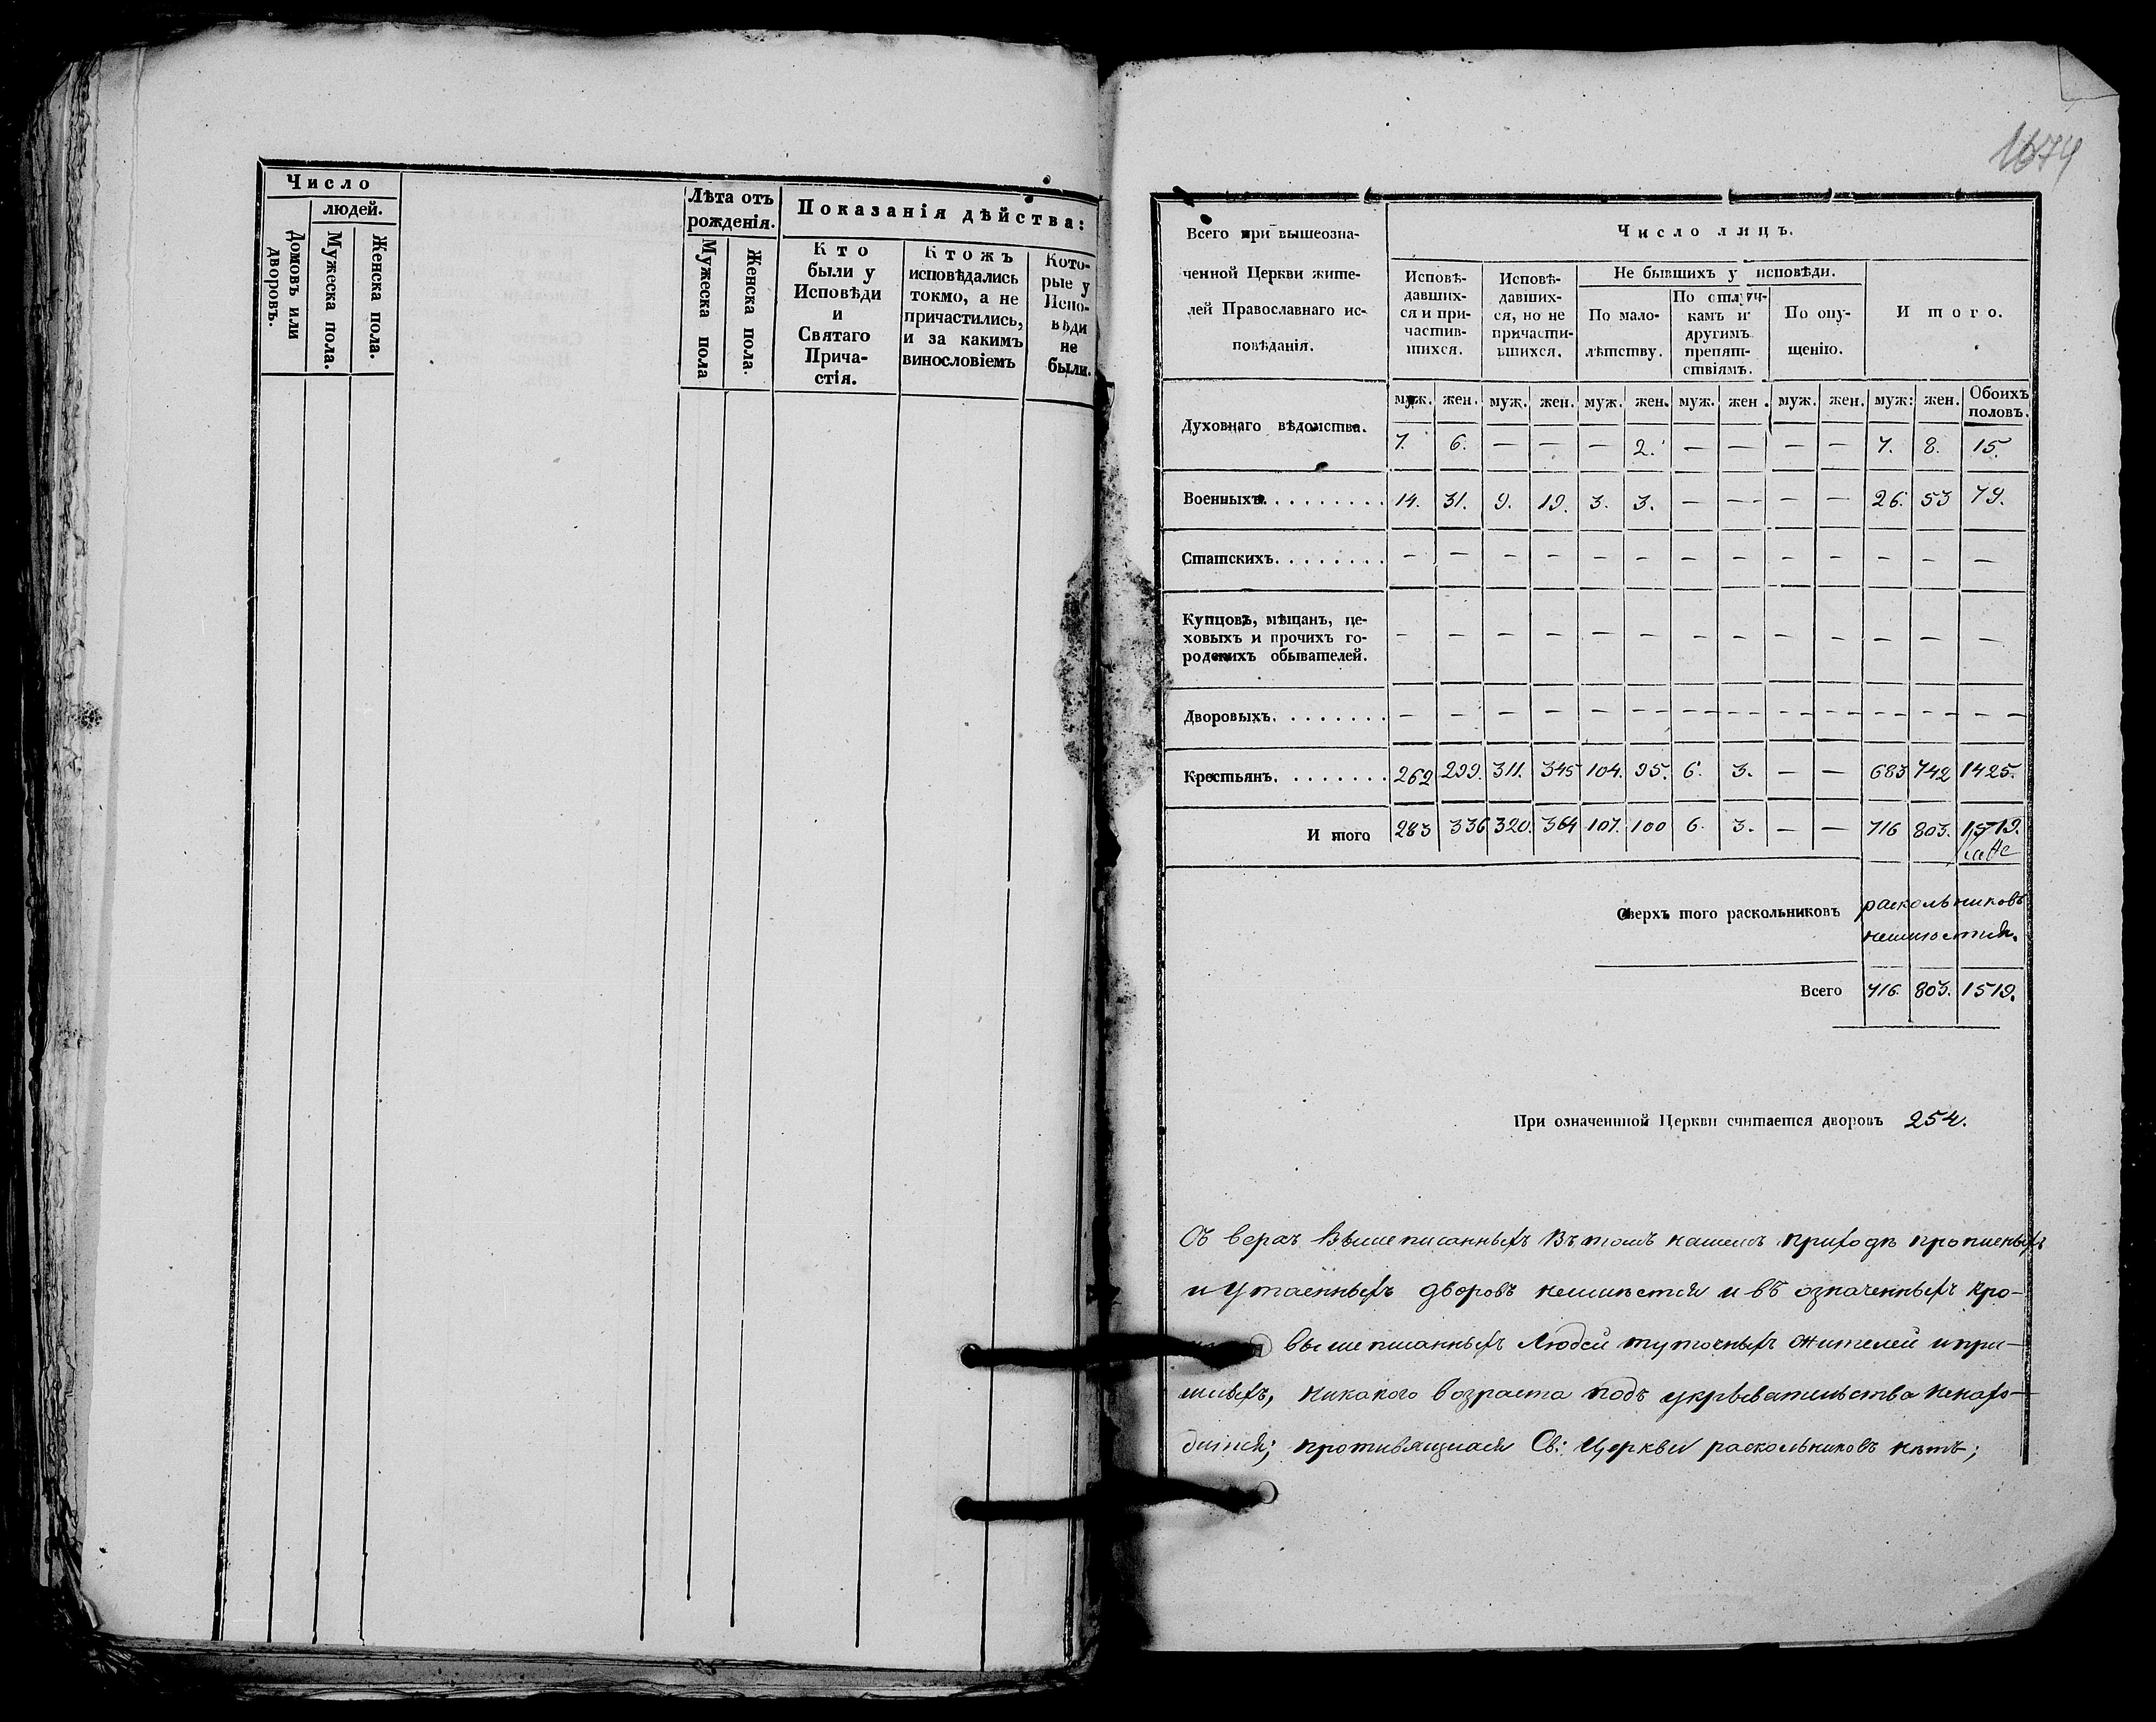 Число
людей.
Домовъ или дворовъ.
Мужеска пола.
Женска пола.
Лѣта отъ
рожденія.
Мужеска пола
Женска пола.
Показанія дѣйства:
Кто
были у
Исповѣди
и
Святаго
Прича-
стія.
Ктожъ
исповѣдались
токмо, а не
причастились,
и за какимъ
винословіемъ
Кото-
рые у
Испо-
вѣди
не
были.
Всего при вышеозна-
ченной Церкви жите-
лей Православнаго ис-
повѣданія.
Число лицъ.
Исповѣ-
давших-
ся и при-
частив-
шихся.
Исповѣ-
давших-
ся, но не
причасти-
вшихся.
Не бывшихъ у исповѣди.
По мало-
лѣтству.
По отлуч-
камъ и
другимъ
препят-
ствіямъ.
По опу-
щенію.
Итого.
муж. жен. муж. жен. муж. жен. муж. жен. муж. жен. муж: жен. Обоихъ половъ.
Духовнаго вѣдомства. 7. 6. — — — 2. — — — — 7. 8. 15.
Военныхъ. . . . . . . . . 14. 31. 9. 19. 3. 3. — — — — 26. 53 79.
Статскихъ. . . . . . . . — — — — — — — — — — — — —
Купцовъ, мѣщанъ, це-
ховыхъ и прочихъ го-
родскихъ обывателей. — — — — — — — — — — — — —
Дворовыхъ. . . . . . . . — — — — — — — — — — — — —
Крестьянъ. . . . . . . . 262 299. 311. 345 104. 95. 6. 3. — — 683 742 1425.
И того 283 336 320. 364 107. 100 6. 3. — — 716 803. 1519.
Сверхъ того раскольниковъ раскольниковъ
неимѣется.
Всего 716. 803. 1519.
При означенной Церкви считается дворовъ 254.
Съ верхъ вышеписанныхъ въ томъ нашемъ приходѣ прописныхъ
и утаенныхъ дворовъ неимѣется и въ означенныхъ кро-
вышеписанныхъ людей туточныхъ жителей и при-
шлыхъ, никакого возраста подъ укрывательства ненахо-
дится; противящихся Св: Церкви раскольниковъ нѣтъ;